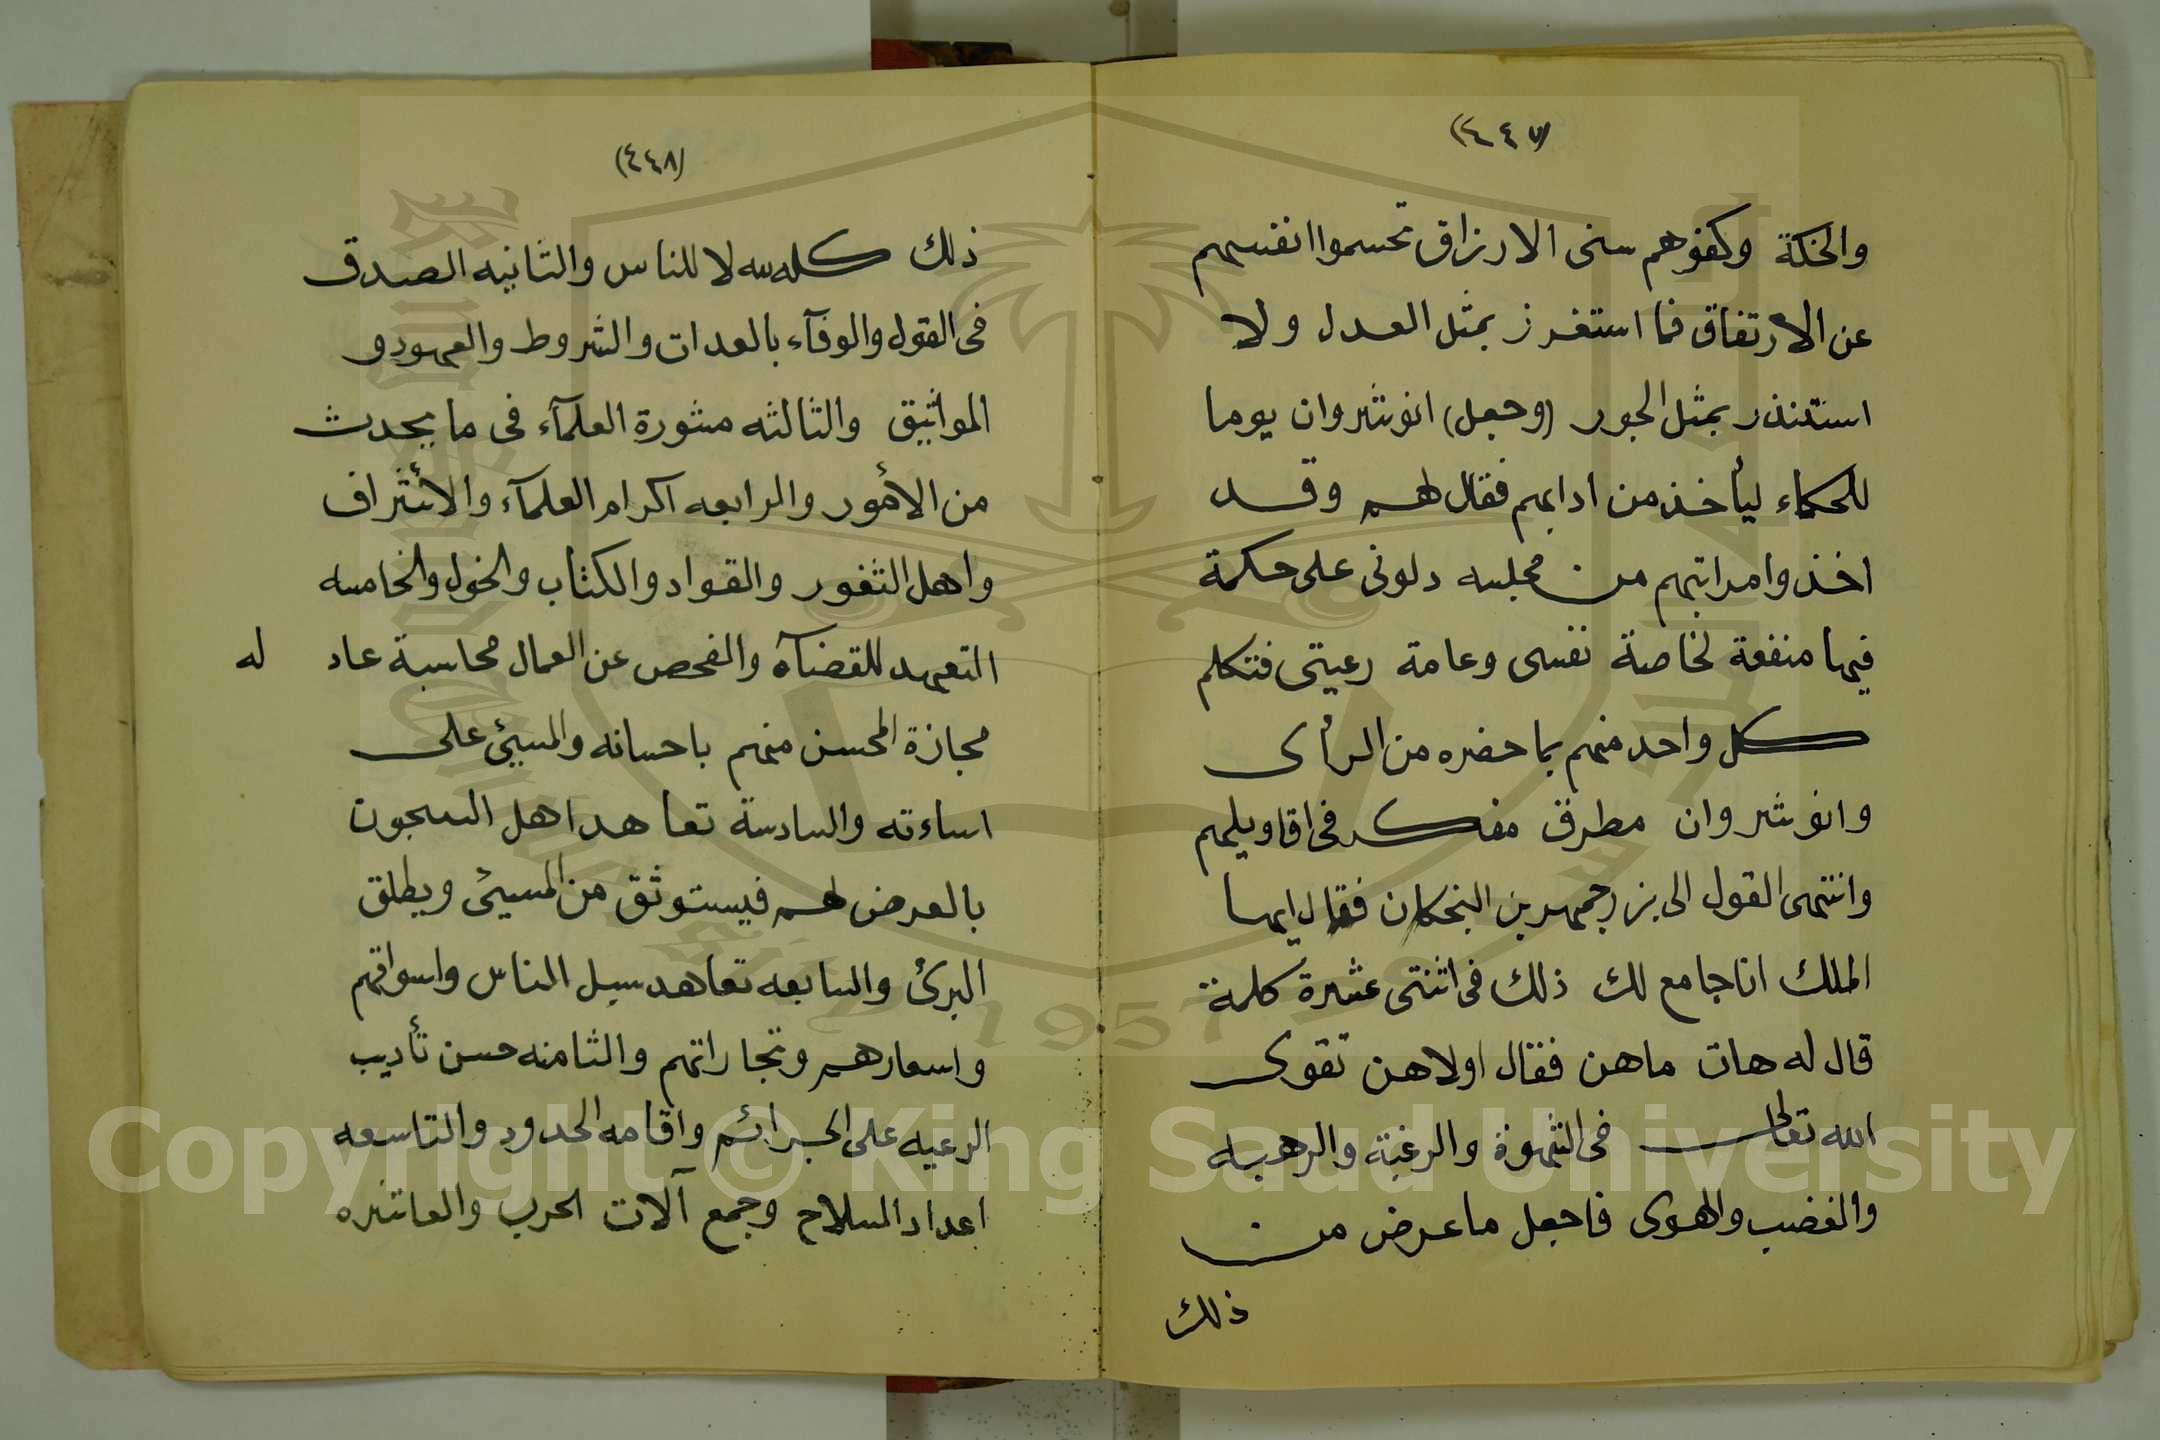 (٤٤٧)
والخكة وكفوهم سنى الارزاق تحسموا انفسهم
عن الارتفاق فما استغرز بمثل العدل ولا
استنذر بمثل الجور (وجعل) انوشروان يوما
للحكماء ليأخذ من ادابهم فقال لهم وقد
اخذوا مراتبهم من مجلسه دلونى على حكمة
فيها منفعة لخاصة نفسى وعامة رعيتى فتكلم
كل واحد منهم بما حضره من الرأى
وانوشروان مطرق مفكر فى اقاويلهم
وانتهى القول الى بزرجمهر بن البختكان فقال ايها
الملك انا جامع لك ذلك فى اثنتى عشرة كلمة
قال له هات ماهن فقال اولاهن تقوى
الله تعالى فى الشهوة والرغبة والرهبه
والغضب والهوى فاجعل ما عرض من
ذلك
(٤٤٨)
ذلك كله لله لا للناس والثانيه الصدق
فى القول والوفآء بالعدات والشروط والعهود و
المواثيق والثالثه مشورة العلمآء فى ما يحدث
من الأمور والرابعه اكرام العلمآء والأشراف
واهل الثغور والقواد والكتاب والخول والخامسه
التعهد للقضآه والفحص عن العمال محاسبة عاد له
مجازة المحسن منهم باحسانه والمسيئ على
اساءته والسادسة تعاهد اهل السجون
بالعرض لهم فيستوثق من المسيئ ويطلق
البرئ والسابعه تعاهد سبل الناس واسواقهم
واسعارهم وتجاراتهم والثامنه حسن تأديب
الرعيه على الجرائم واقامه الحدود والتاسعه
اعداد السلاح وجمع آلات الحرب والعاشره
1957
Copyright © King Saud University